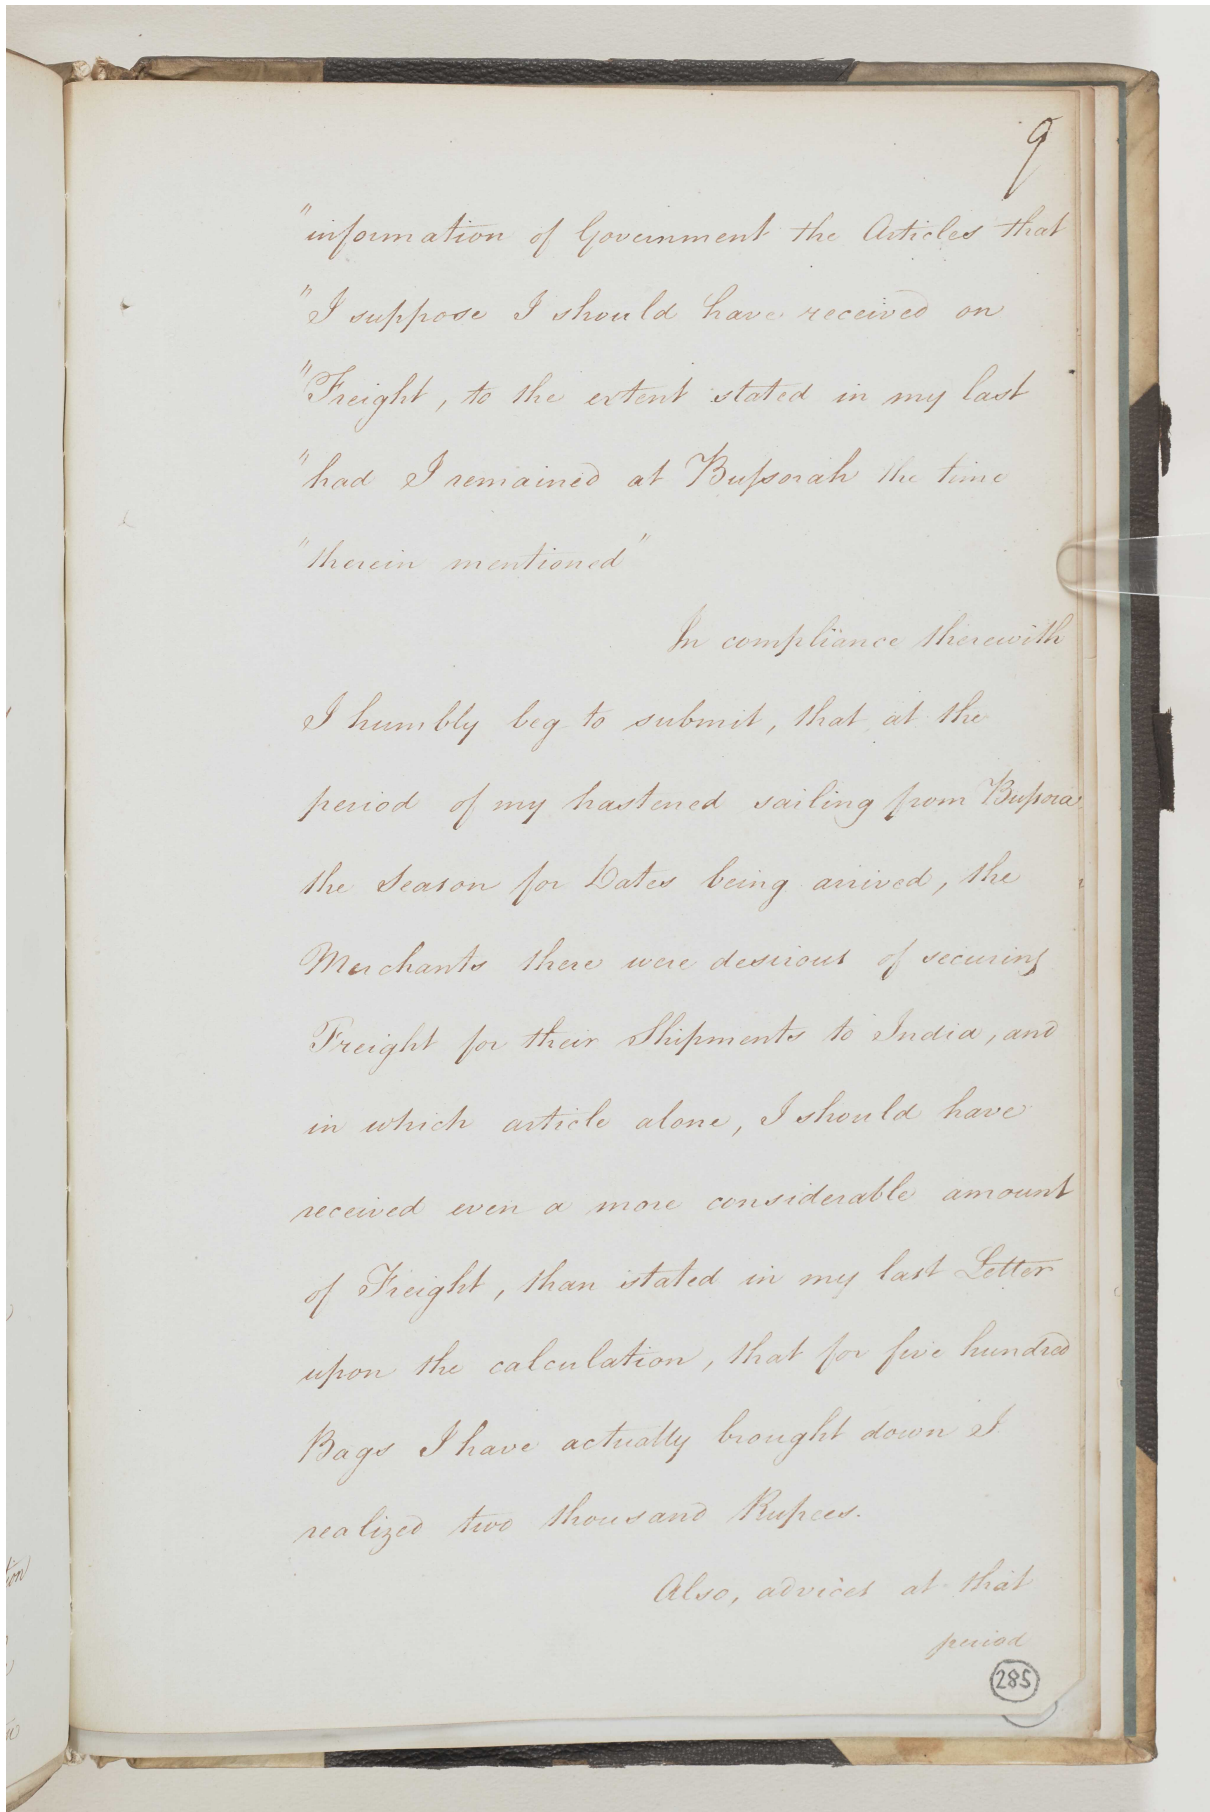 9
"information of Government the Articles that
"I suppose I should have received on
"Freight, to the extent stated in my last
"had I remained at Bußorah the time
"therein mentioned"
In compliance therewith
I humbly beg to submit, that at the
period of my hastened sailing from Bußora
the Season for Dates being arrived, the
Merchants there were desirous of securing
Freight for their Shipments to India, and
in which article alone, I should have
received even a more considerable amount
of Freight, than stated in my last Letter
upon the calculation, that for five hundred
Bags I have actually brought down I
realized two thousand Rupees.
Also, advices at that
period
285